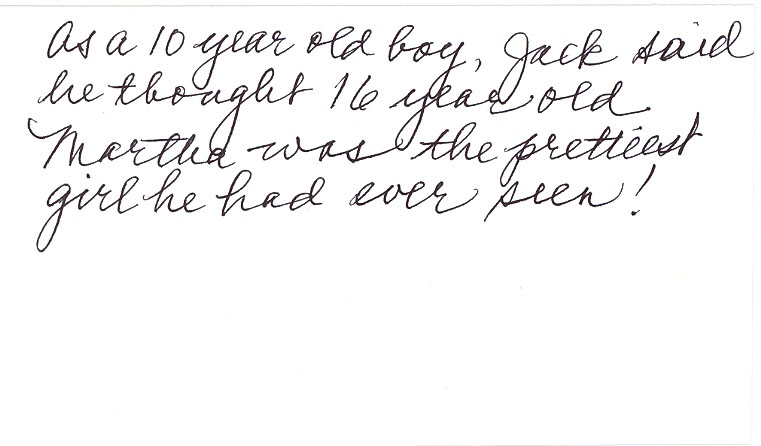 As a 10 year old boy, Jack said
he thought 16 year old
Martha was the prettiest
girl he had ever seen!